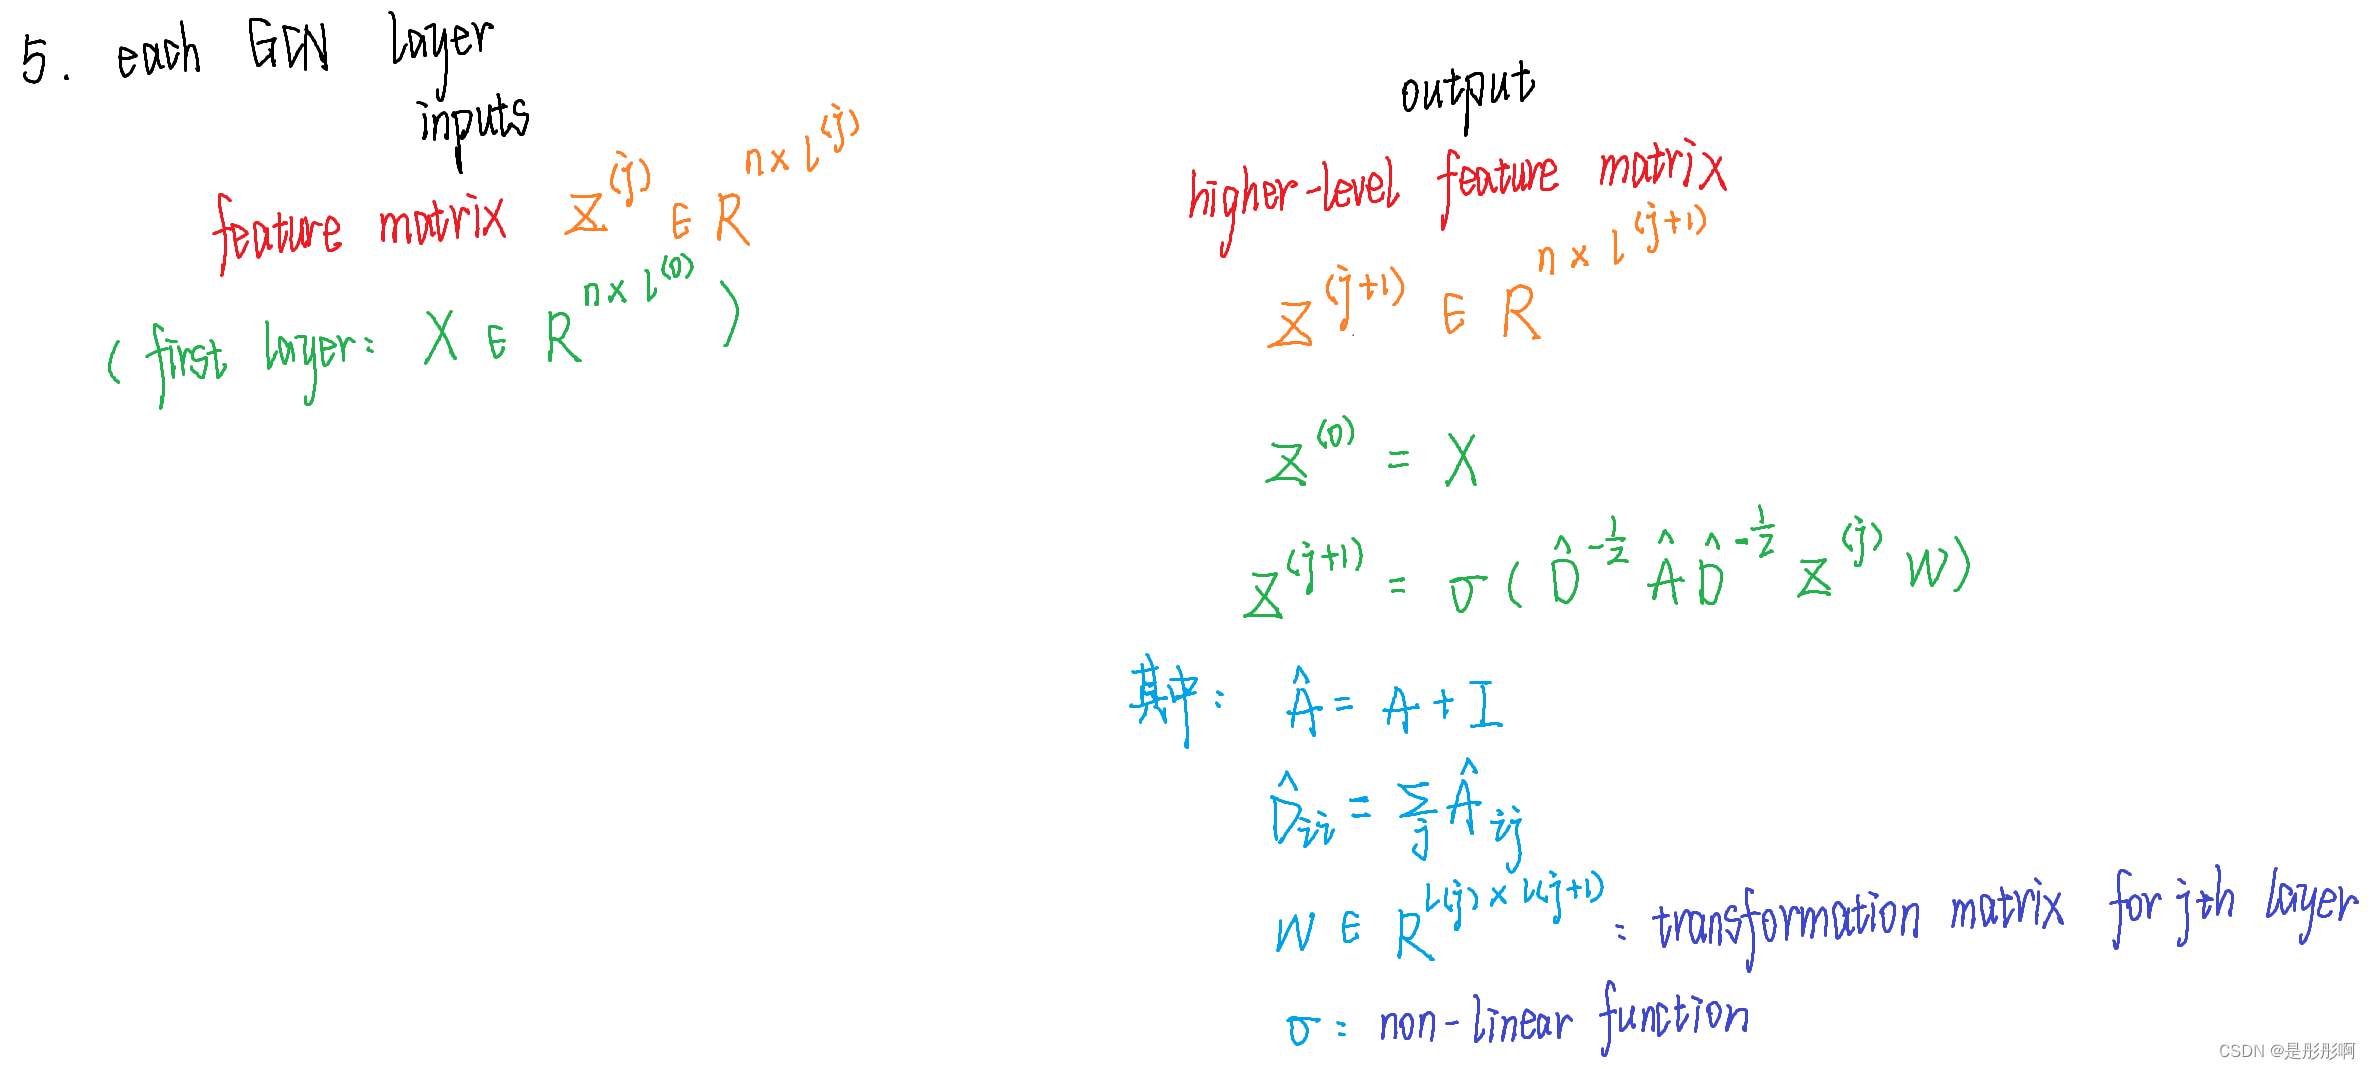 5. each GCN layer
inputs
feature matrix Z^(j) ∈ R^{n×l^(j)}
(first layer: X ∈ R^{n×l^(0)})
output
higher-level feature matrix
Z^(j+1) ∈ R^{n×l^(j+1)}
Z^(0) = X
Z^(j+1) = σ(D̂^{-1/2} Â D̂^{-1/2} Z^(j) W)
其中: Â = A + I
D̂_ii = Σ_j Â_ij
W ∈ R^{l(j)×l(j+1)} : transformation matrix for jth layer
σ: non-linear function
CSDN @是彤彤啊